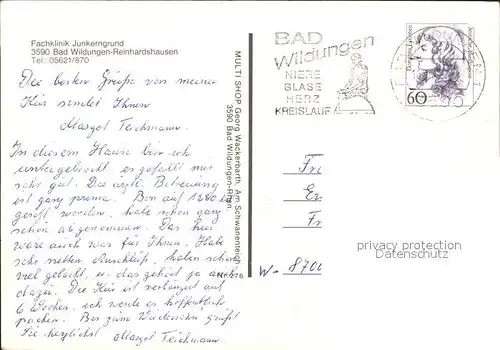 Fachklinik Junkerngrund
3590 Bad Wildungen-Reinhardshausen
Tel.: 05621/870
Die besten Grüße von meiner
Kur sendet Ihnen
Margot Teichmann.
In diesem Hause bin ich
untergebracht es gefällt mir
sehr gut. Die ärztl. Betreuung
ist ganz prima. Bin auf 1200
gesetzt worden, habe schon ganz
schön abgenommen. Das hier
wäre auch was für Ihnen. Habe
sehr netten Anschluß, haben schon
viel gelacht, u. das gehört ja auch
dazu. Die Kur ist verlängert auf
6 Wochen, ich werde es hoffentlich
packen. Bis zum Wiedersehn grüßt
Sie herzlichst Margot Teichmann.
MULTI SHOP Georg Wackerbarth Am Schwanenteich
3590 Bad Wildungen-Rhsn
BAD
Wildungen
NIERE
BLASE
HERZ
KREISLAUF
60
Fr
Er
Fr
W-8700
privacy protection
Datenschutz